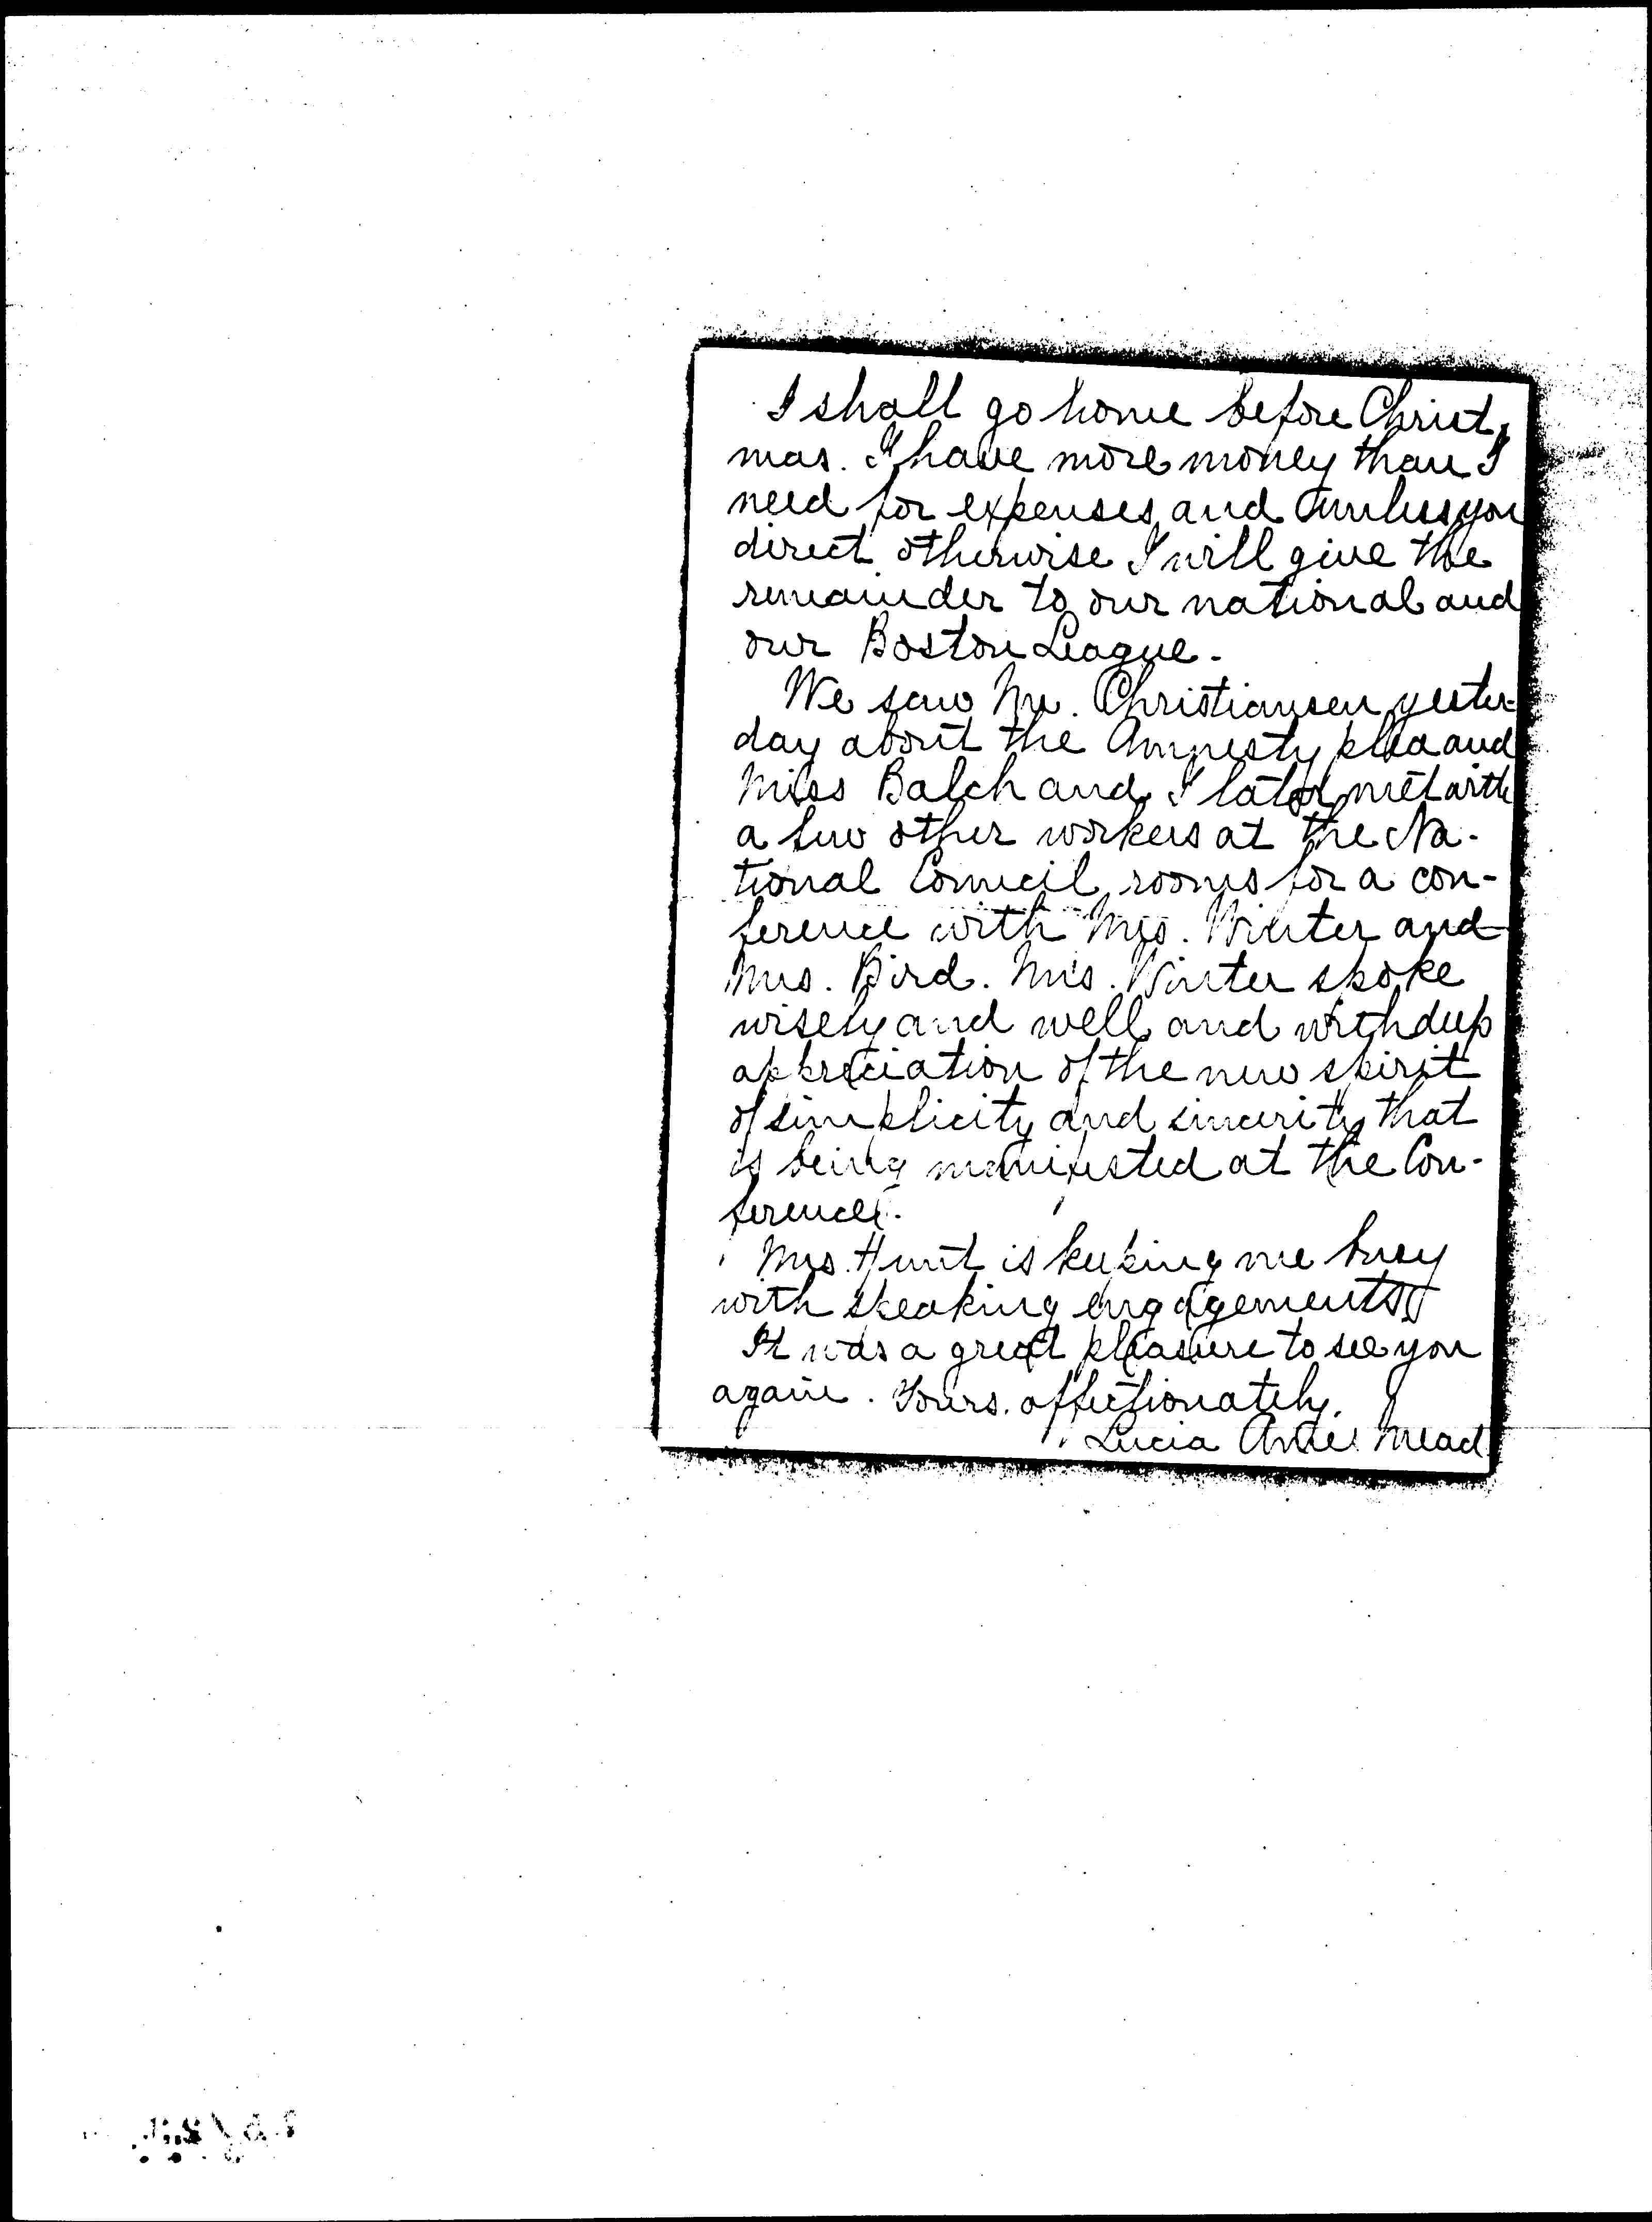 I shall go home before Christ-
mas. I have more money than I
need for expenses and unless you
direct otherwise I will give the
remainder to our national and
our Boston League.
We saw Mr. Christiansen yester-
day about the Amnesty plea and
Miss Balch and I later met with
a few other workers at the Na-
tional Council rooms for a con-
ference with Mrs. Winter and
Mrs. Bird. Mrs. Winter spoke
wisely and well and with deep
appreciation of the new spirit
of simplicity and sincerity that
is being manifested at the Con-
ference.
Mrs. Hunt is keeping me busy
with speaking engagements
It was a great pleasure to see you
again. Yours affectionately,
Lucia Ames Mead